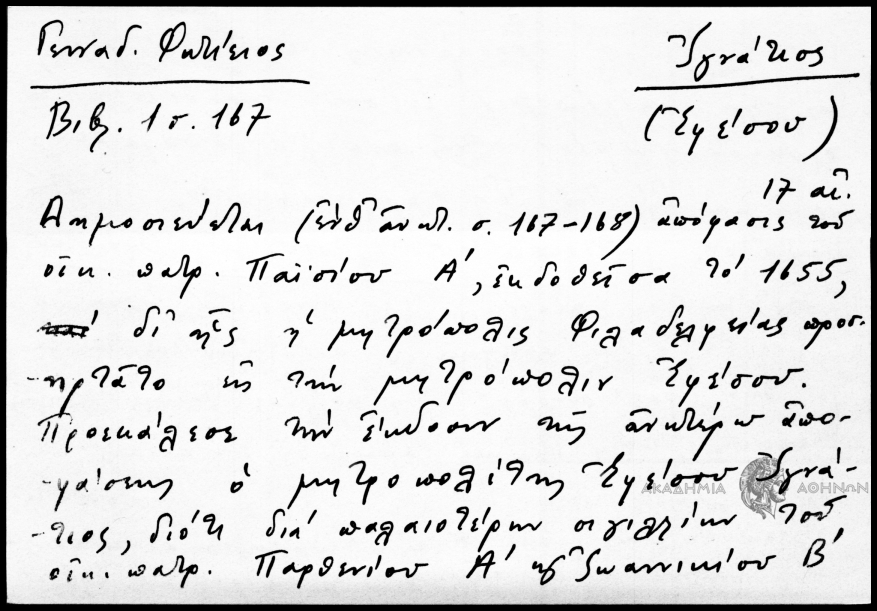 Γενναδ. Φωτίειος
Ἰγνάτιος
Βιβλ. 1 σ. 167
(Ἐφέσου)
17 αἰ.
Δημοσιεύεται (ἔνθ' ἀνωτ. σ. 167-168) ἀπόφασις τοῦ
οἰκ. πατρ. Παϊσίου Α', ἐκδοθεῖσα τό 1655,
δι' ἧς ἡ μητρόπολις Φιλαδελφείας προσ-
-ηρτᾶτο εἰς τήν μητρόπολιν Ἐφέσου.
Προεκάλεσε τήν ἔκδοσιν τῆς ἀνωτέρω ἀπο-
-φάσεως ὁ μητροπολίτης Ἐφέσου Ἰγνά-
-τιος, διότι διά παλαιοτέρων σιγιλλίων τοῦ
οἰκ. πατρ. Παρθενίου Α' καί Ἰωαννικίου Β'
ΑΚΑΔΗΜΙΑ ΑΘΗΝΩΝ